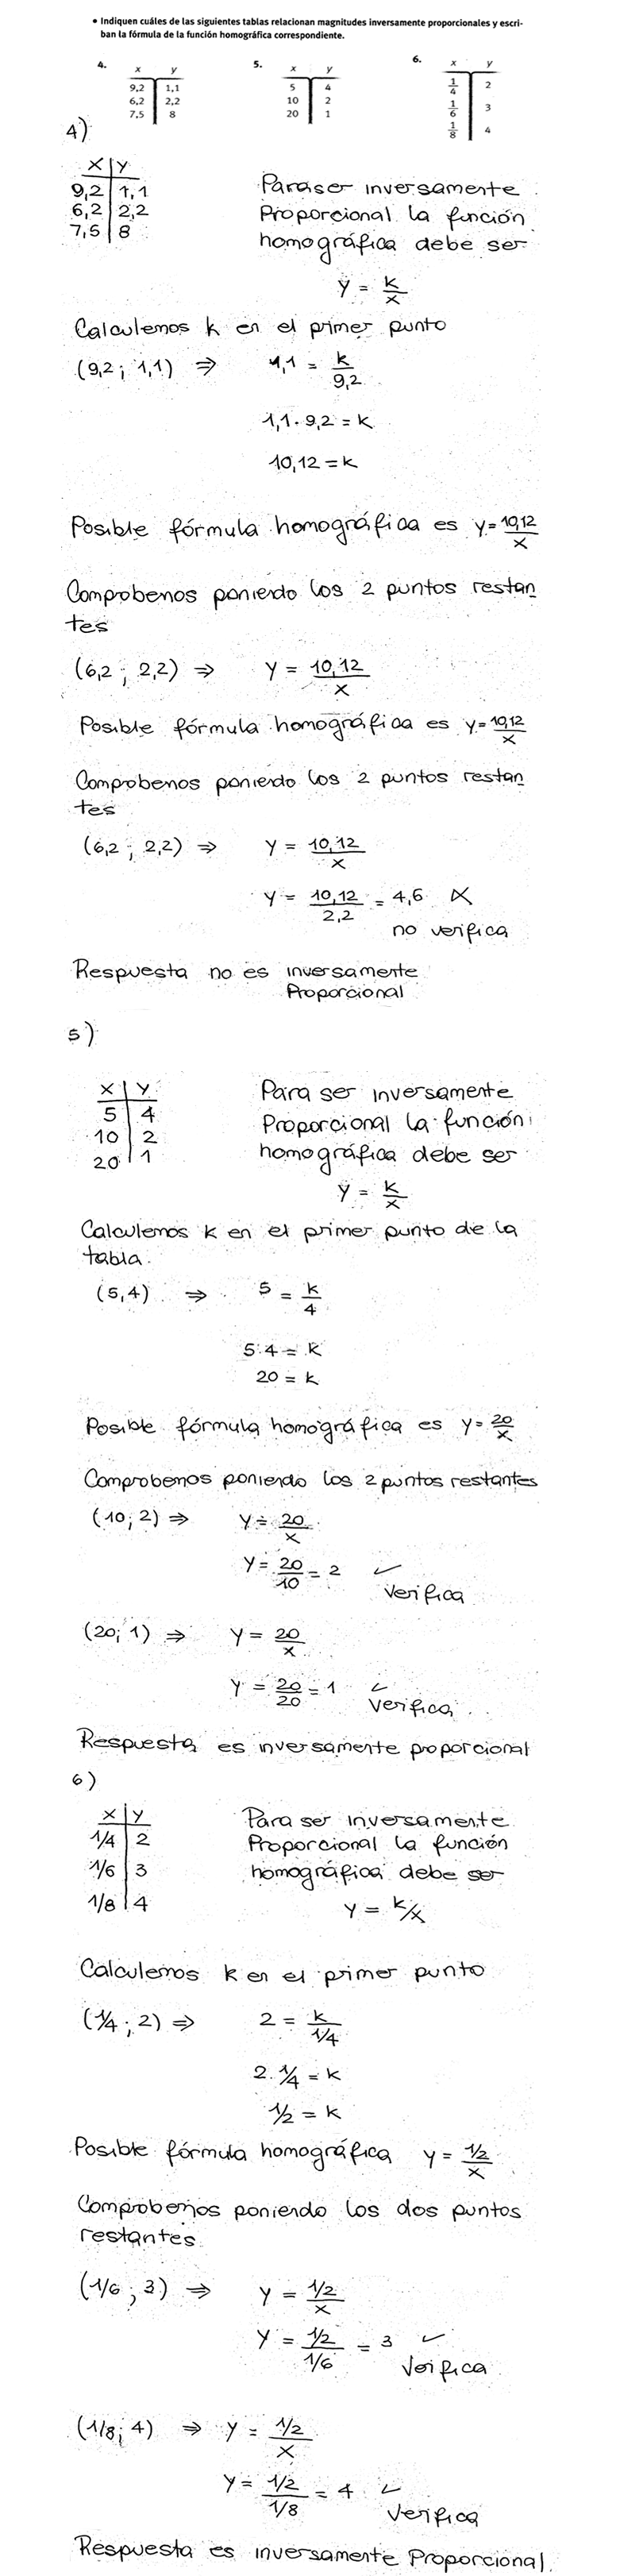 • Indiquen cuáles de las siguientes tablas relacionan magnitudes inversamente proporcionales y escri-
ban la fórmula de la función homográfica correspondiente.
4. x y
9,2 1,1
6,2 2,2
7,5 8
5. x y
5 4
10 2
20 1
6. x y
1/4 2
1/6 3
1/8 4
4)
x y
9,2 1,1
6,2 2,2
7,5 8
Para ser inversamente
Proporcional la función
homográfica debe ser
y = k/x
Calculemos k en el primer punto
(9,2 ; 1,1) ⇒ 1,1 = k/9,2
1,1 . 9,2 = k
10,12 = k
Posible fórmula homográfica es y = 10,12/x
Comprobemos poniendo los 2 puntos restan
tes
(6,2 ; 2,2) ⇒ y = 10,12/x
Posible fórmula homográfica es y = 10,12/x
Comprobemos poniendo los 2 puntos restan
tes
(6,2 ; 2,2) ⇒ y = 10,12/x
y = 10,12/2,2 = 4,6 X
no verifica
Respuesta no es inversamente
Proporcional
5)
x y
5 4
10 2
20 1
Para ser inversamente
Proporcional la función
homográfica debe ser
y = k/x
Calculemos k en el primer punto de la
tabla.
(5,4) ⇒ 5 = k/4
5.4 = k
20 = k
Posible fórmula homográfica es y = 20/x
Comprobemos poniendo los 2 puntos restantes
(10; 2) ⇒ y = 20/x
y = 20/10 = 2 ✓
verifica
(20; 1) ⇒ y = 20/x
y = 20/20 = 1 ✓
verifica
Respuesta es inversamente proporcional
6)
x y
1/4 2
1/6 3
1/8 4
Para ser inversamente
Proporcional la función
homográfica debe ser
y = k/x
Calculemos k en el primer punto
(1/4 ; 2) ⇒ 2 = k/1/4
2. 1/4 = k
1/2 = k
Posible fórmula homográfica y = 1/2/x
Comprobemos poniendo los dos puntos
restantes
(1/6 ; 3) ⇒ y = 1/2/x
y = 1/2/1/6 = 3 ✓
Verifica
(1/8; 4) ⇒ y = 1/2/x
y = 1/2/1/8 = 4 ✓
Verifica
Respuesta es inversamente Proporcional.